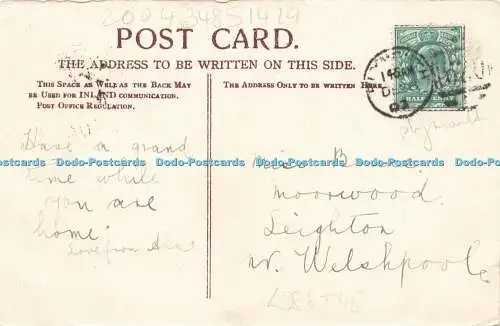 2004348S1419
POST CARD.
THE ADDRESS TO BE WRITTEN ON THIS SIDE.
THIS SPACE AS WELL AS THE BACK MAY
BE USED FOR INLAND COMMUNICATION.
POST OFFICE REGULATION.
THE ADDRESS ONLY TO BE WRITTEN HERE.
HALFPENNY
plymouth
Have a grand
time while
you are
home.
Love from
Miss
Moorwood.
Leighton
nr. Welshpool
Dodo-Postcards Dodo-Postcards Dodo-Postcards Dodo-Postcards Dodo-Postcards Dodo-Postcards